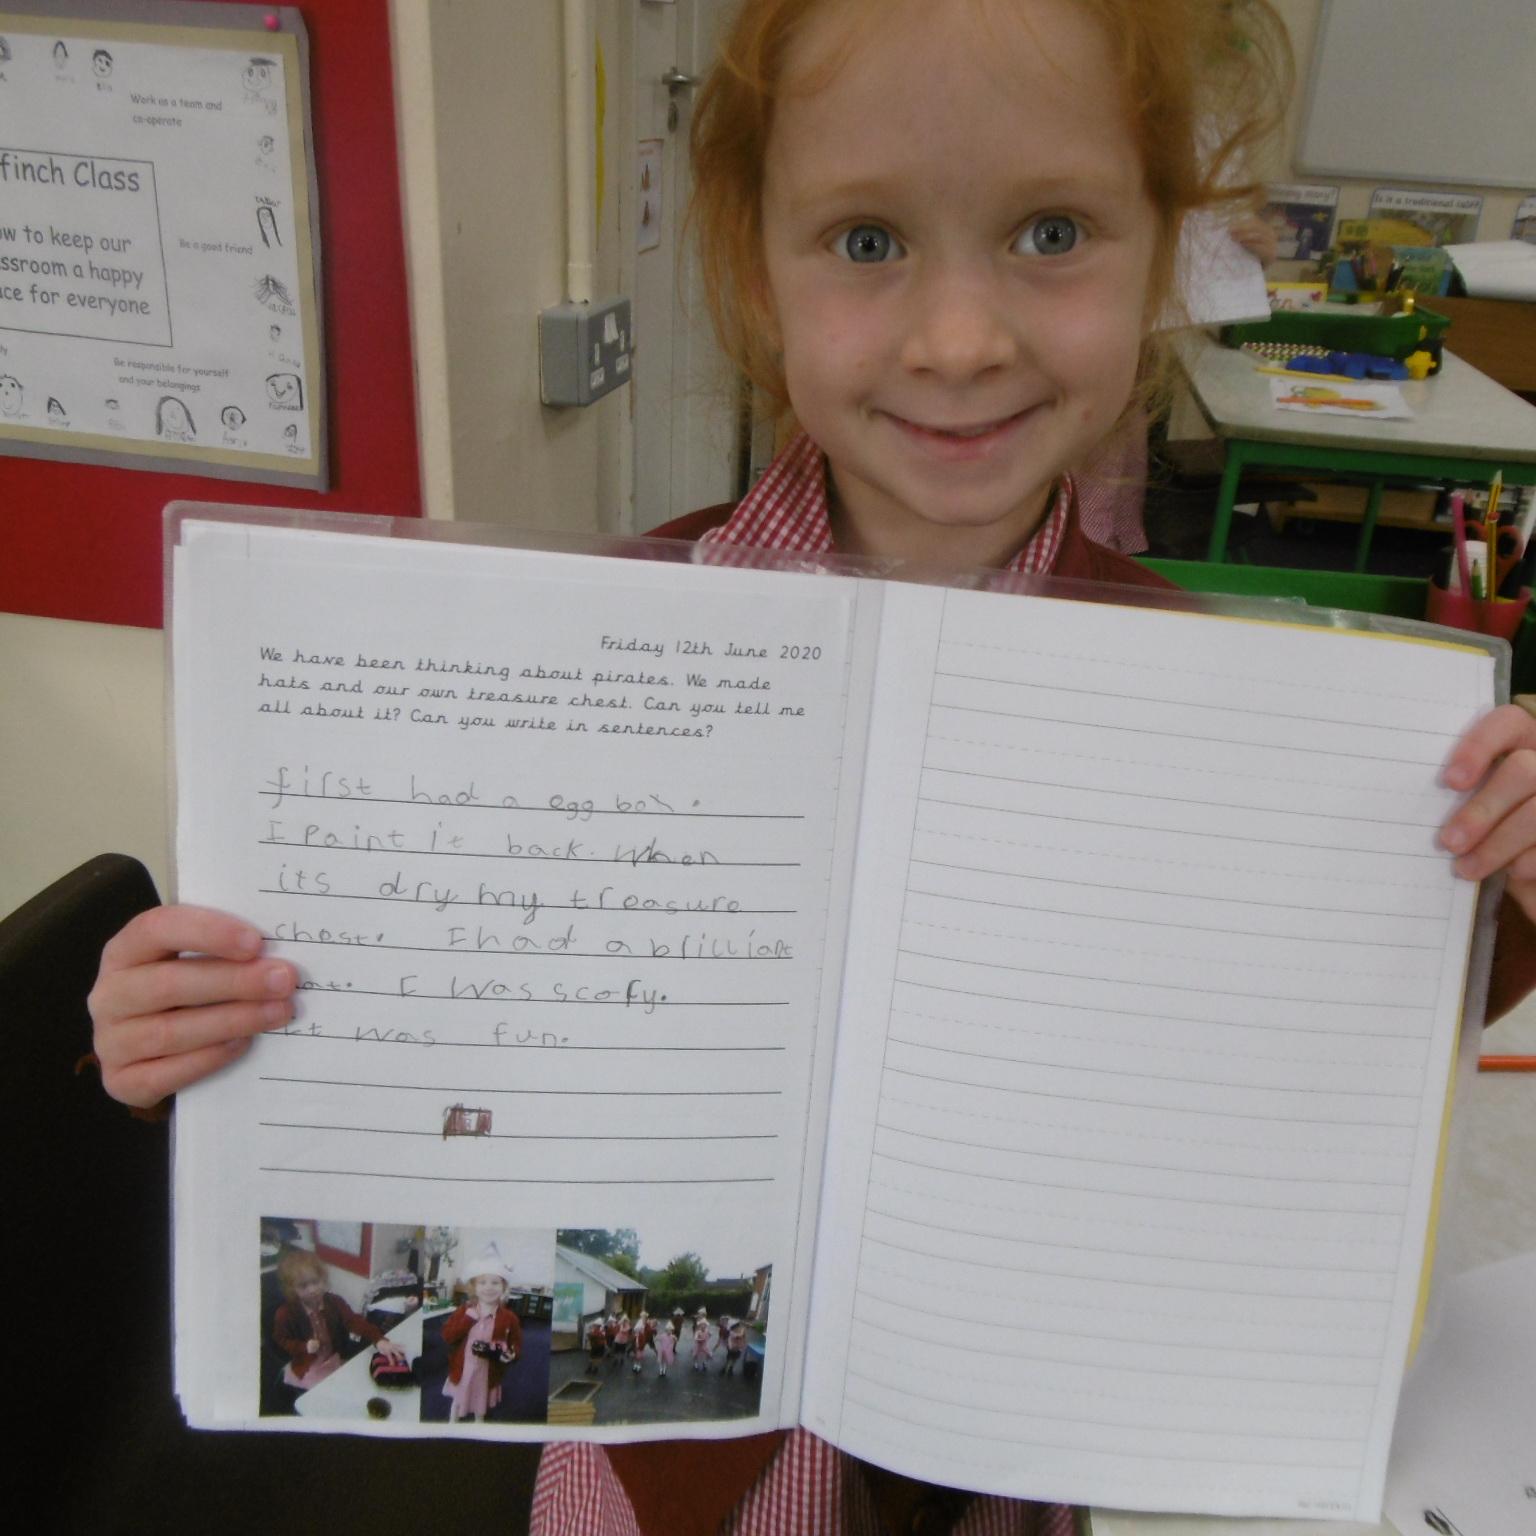 Work as a team and
co-operate
finch Class
to keep our
a happy
for everyone
Be a good friend
Be responsible for yourself
and your belongings
Is it a traditional tale?
Friday 12th June 2020
We have been thinking about pirates. We made
hats and our own treasure chest. Can you tell me
all about it? Can you write in sentences?
first had a egg box.
I Paint it back. When
its dry my treasure
chest. I had a brilliant
I was scary.
It was fun.